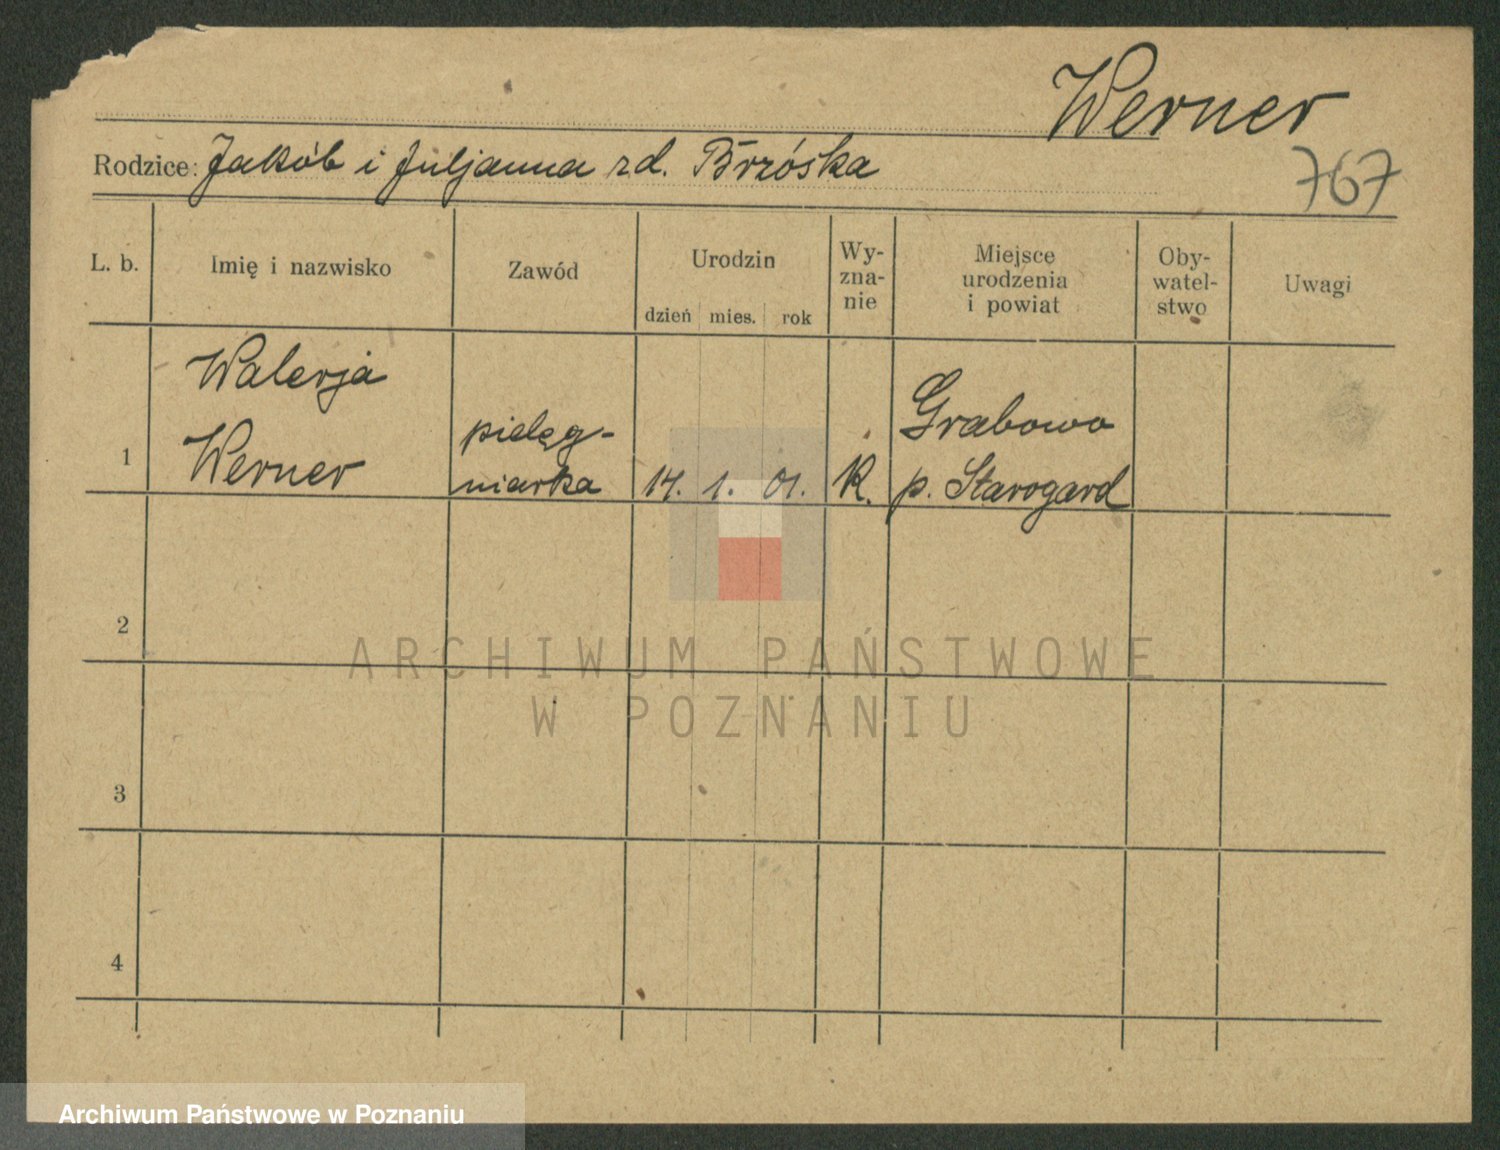 Werner
Rodzice: Jakób i Juljanna zd. Brzóska
767
L. b. Imię i nazwisko Zawód Urodzin Wy-zna-nie Miejsce urodzenia i powiat Oby-watel-stwo Uwagi
dzień mies. rok
Walerja
Werner
1
pielęg-
niarka
14. 1. 01. K.
Grabowo
p. Starogard
2
3
4
ARCHIWUM PAŃSTWOWE
W POZNANIU
Archiwum Państwowe w Poznaniu